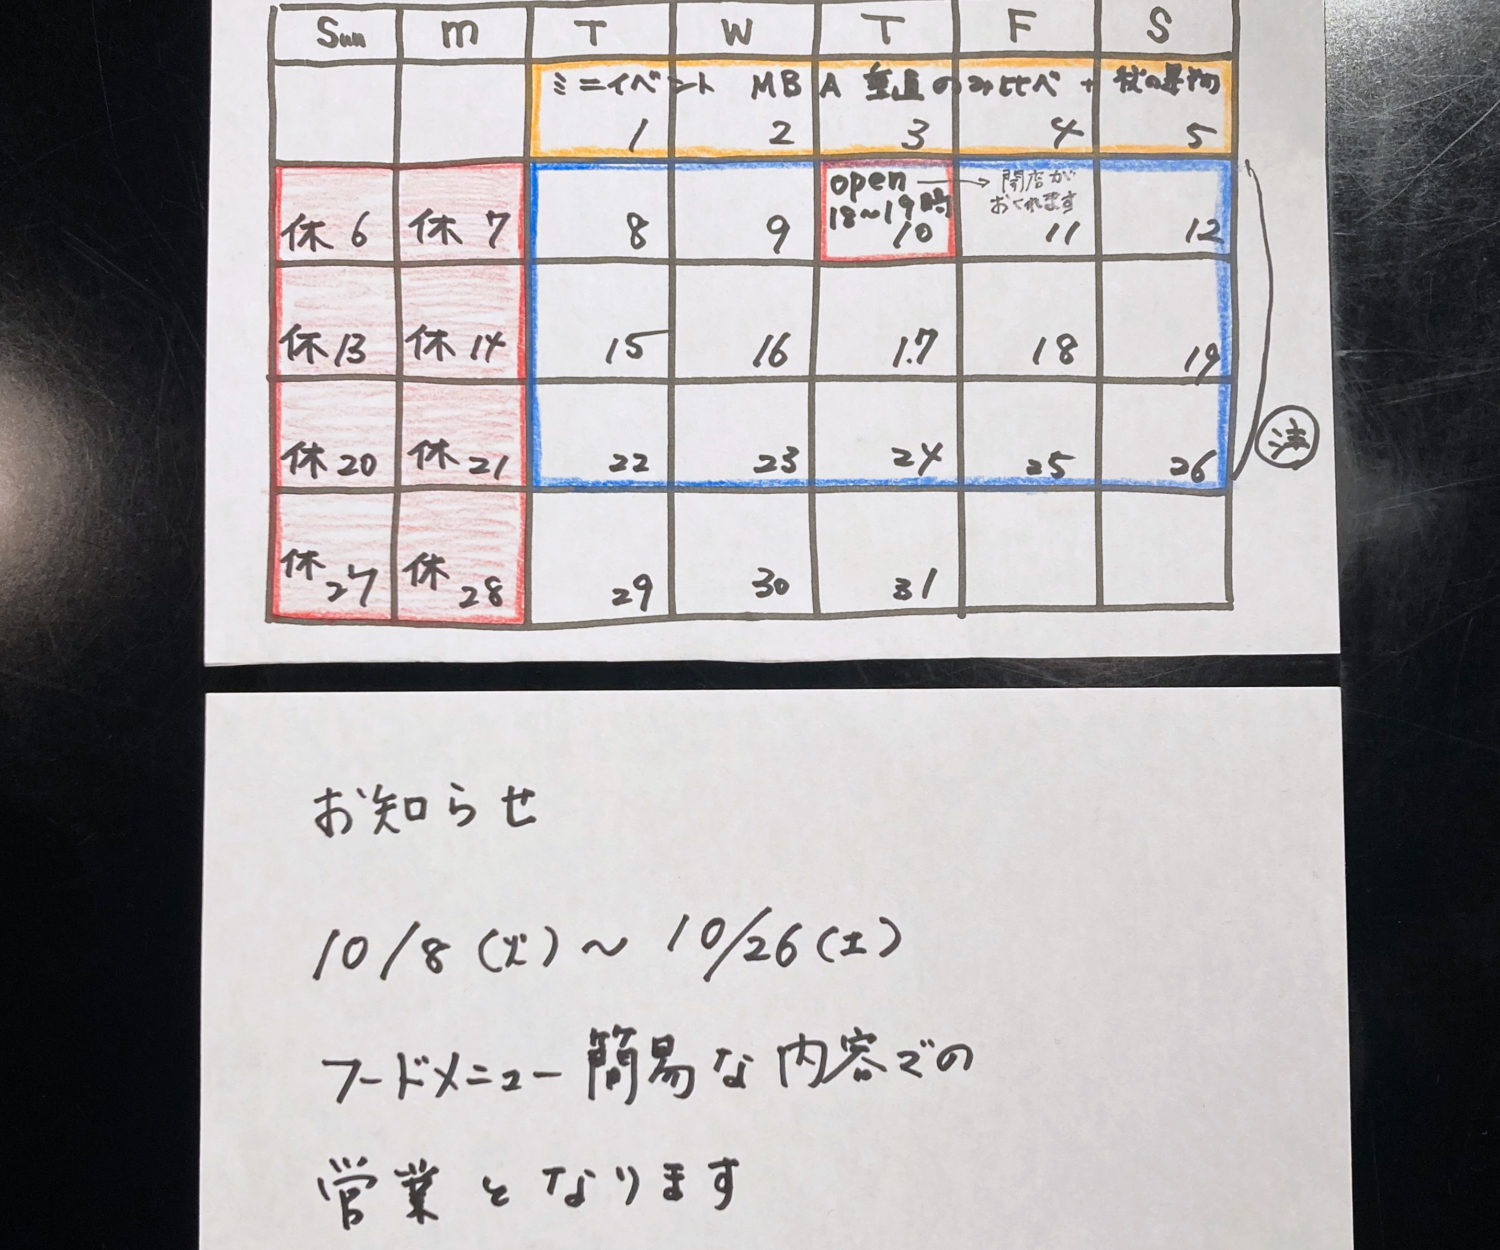 Sun m T W T F S
ミニイベント MBA 垂直のみ比べ + 秋の果物
1 2 3 4 5
open → 開店が
18〜19時 おくれます
休6 休7 8 9 10 11 12
休13 休14 15 16 17 18 19
注
休20 休21 22 23 24 25 26
休27 休28 29 30 31
お知らせ
10/8(火)〜10/26(土)
フードメニュー簡易な内容での
営業となります